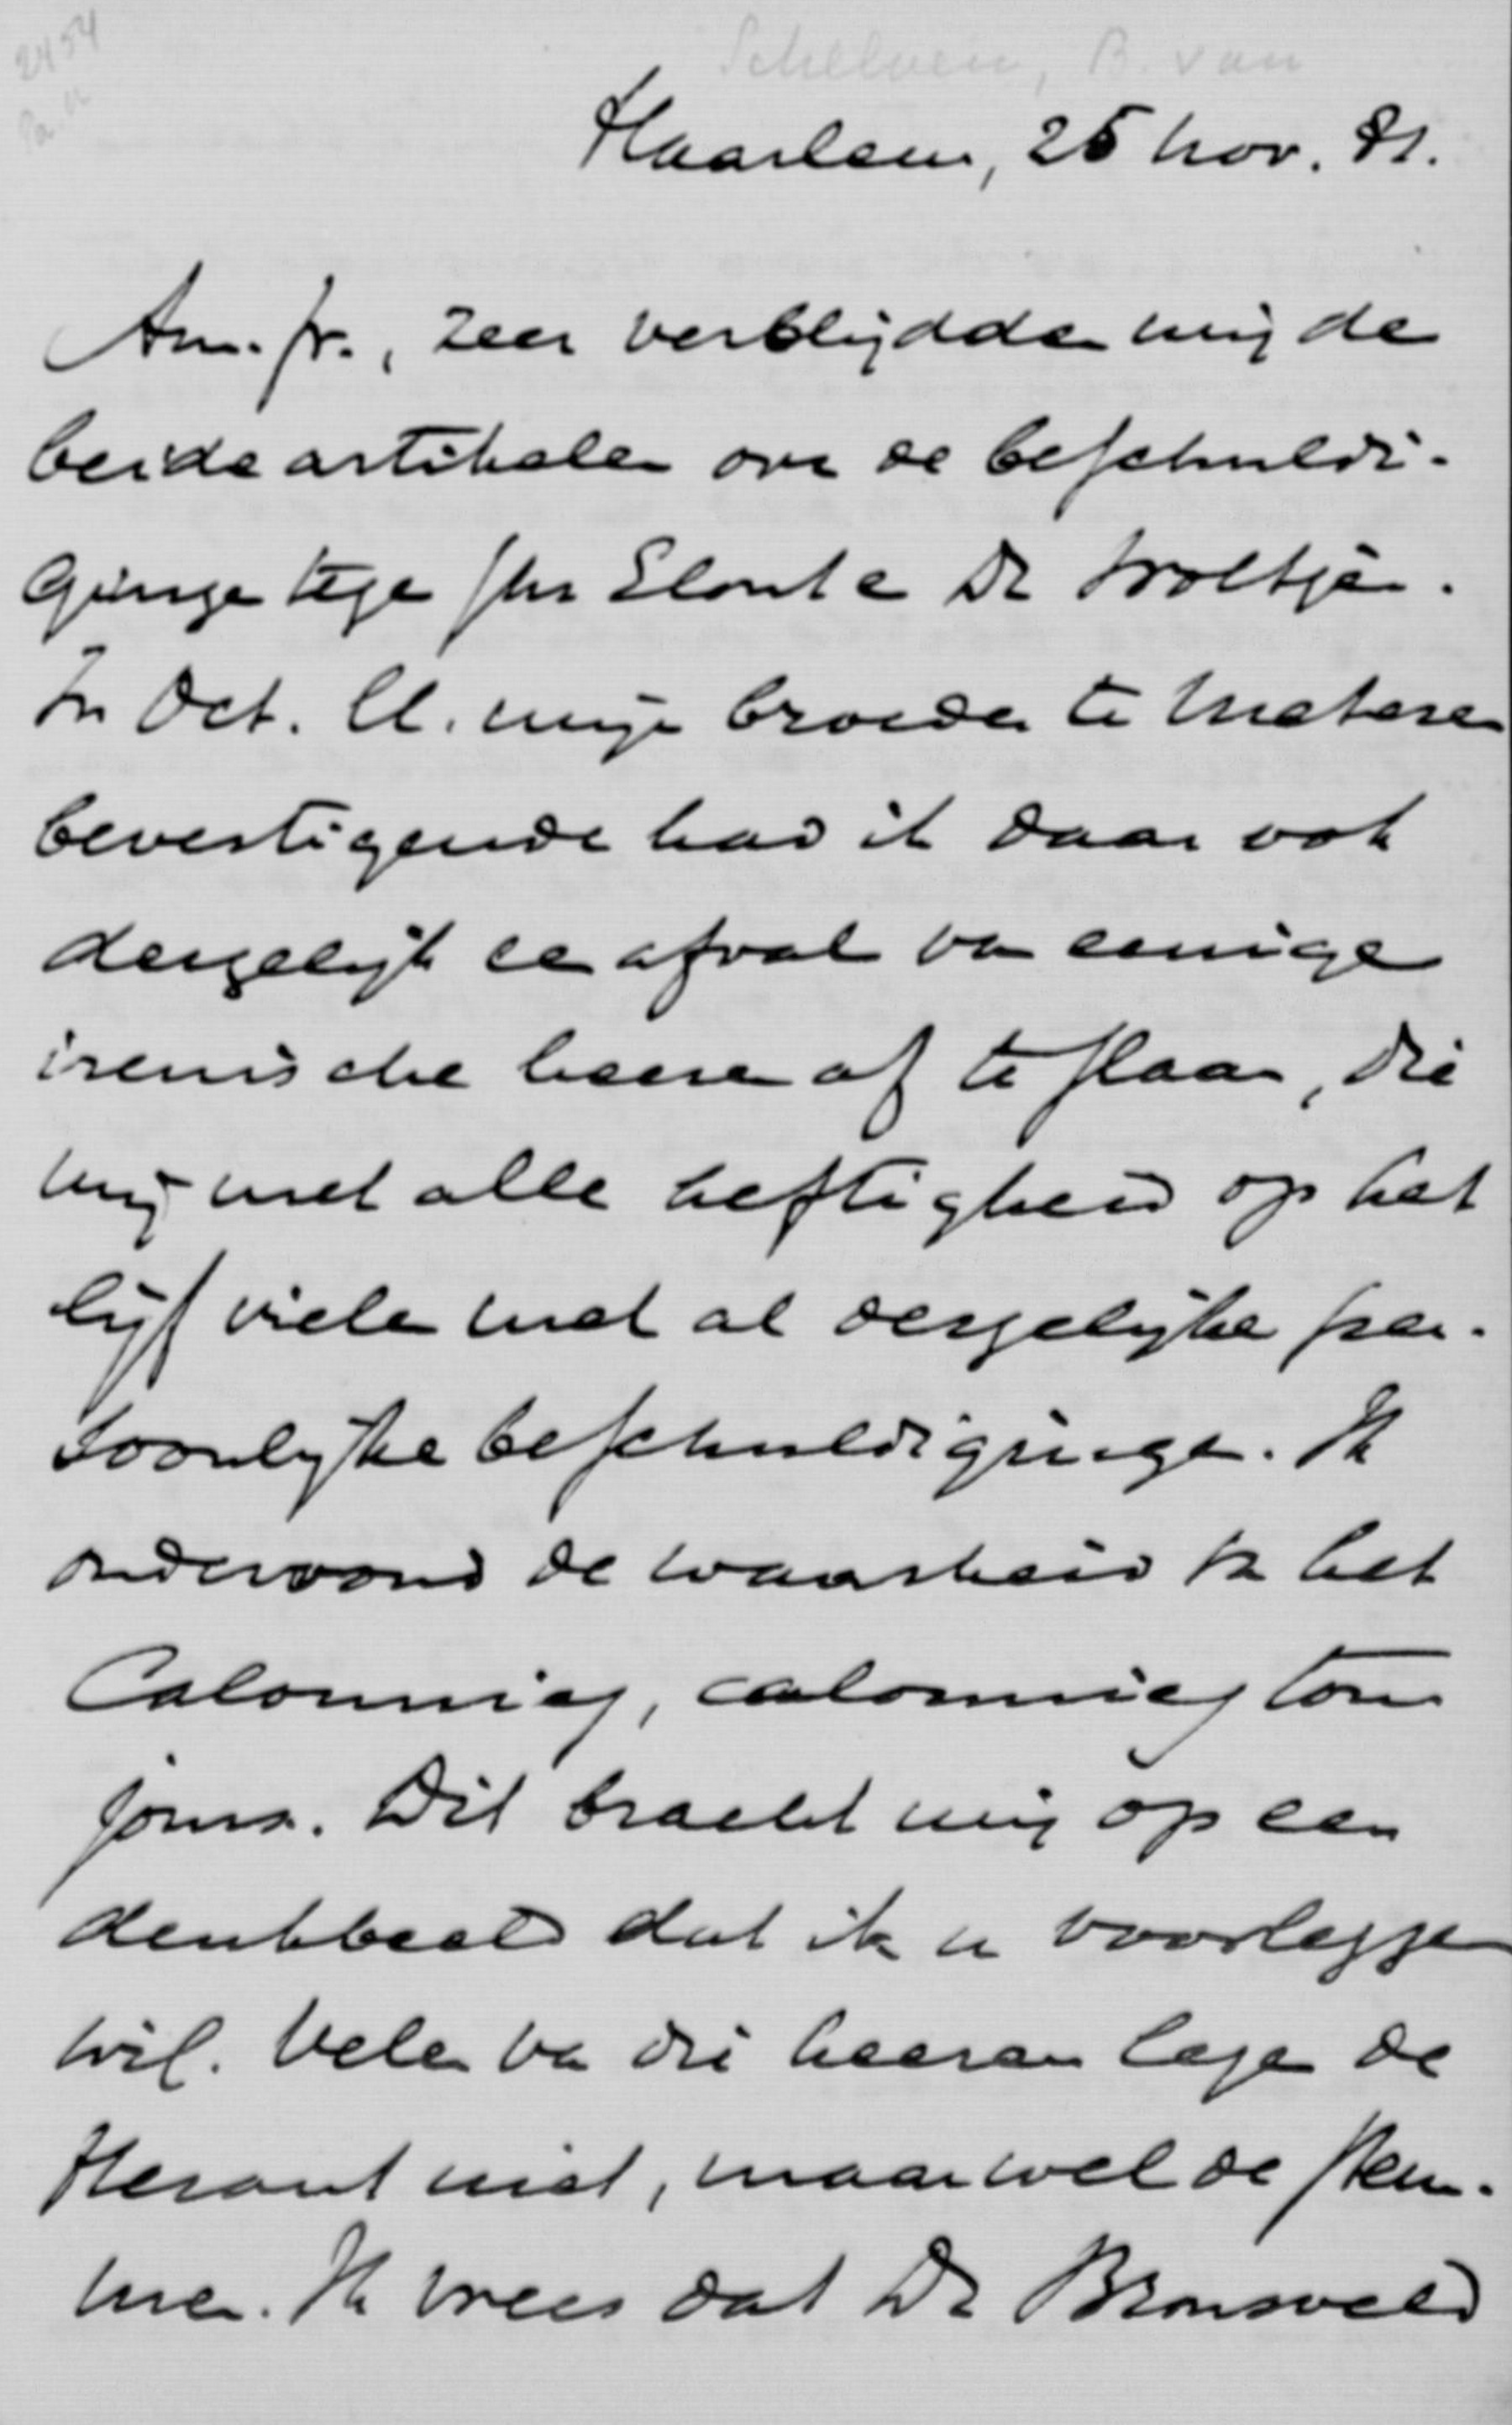 2454
Schelven, B. van
Haarlem, 25 Nov. 81.
Am. fr., zeer verblijdden mij de
beide artikelen over de beschuldi-
gingen tegen Jhr Elout en Dr Woltjer.
In Oct. ll. mijn broeder te Meteren
bevestigende had ik daar ook
dergelijk een afval van eenige
irenische heeren af te slaan, die
mij met alle heftigheid op het
lijf vielen met al dergelijke per-
soonlijke beschuldigingen. Ik
ondervond de waarheid van het
Calomniez, calomniez tou-
jours. Dit bracht mij op een
denkbeeld dat ik u voorleggen
wil. Velen van die heeren lezen de
Heraut niet, maar wel de Stem-
men. Ik vrees dat Dr Bronsveld